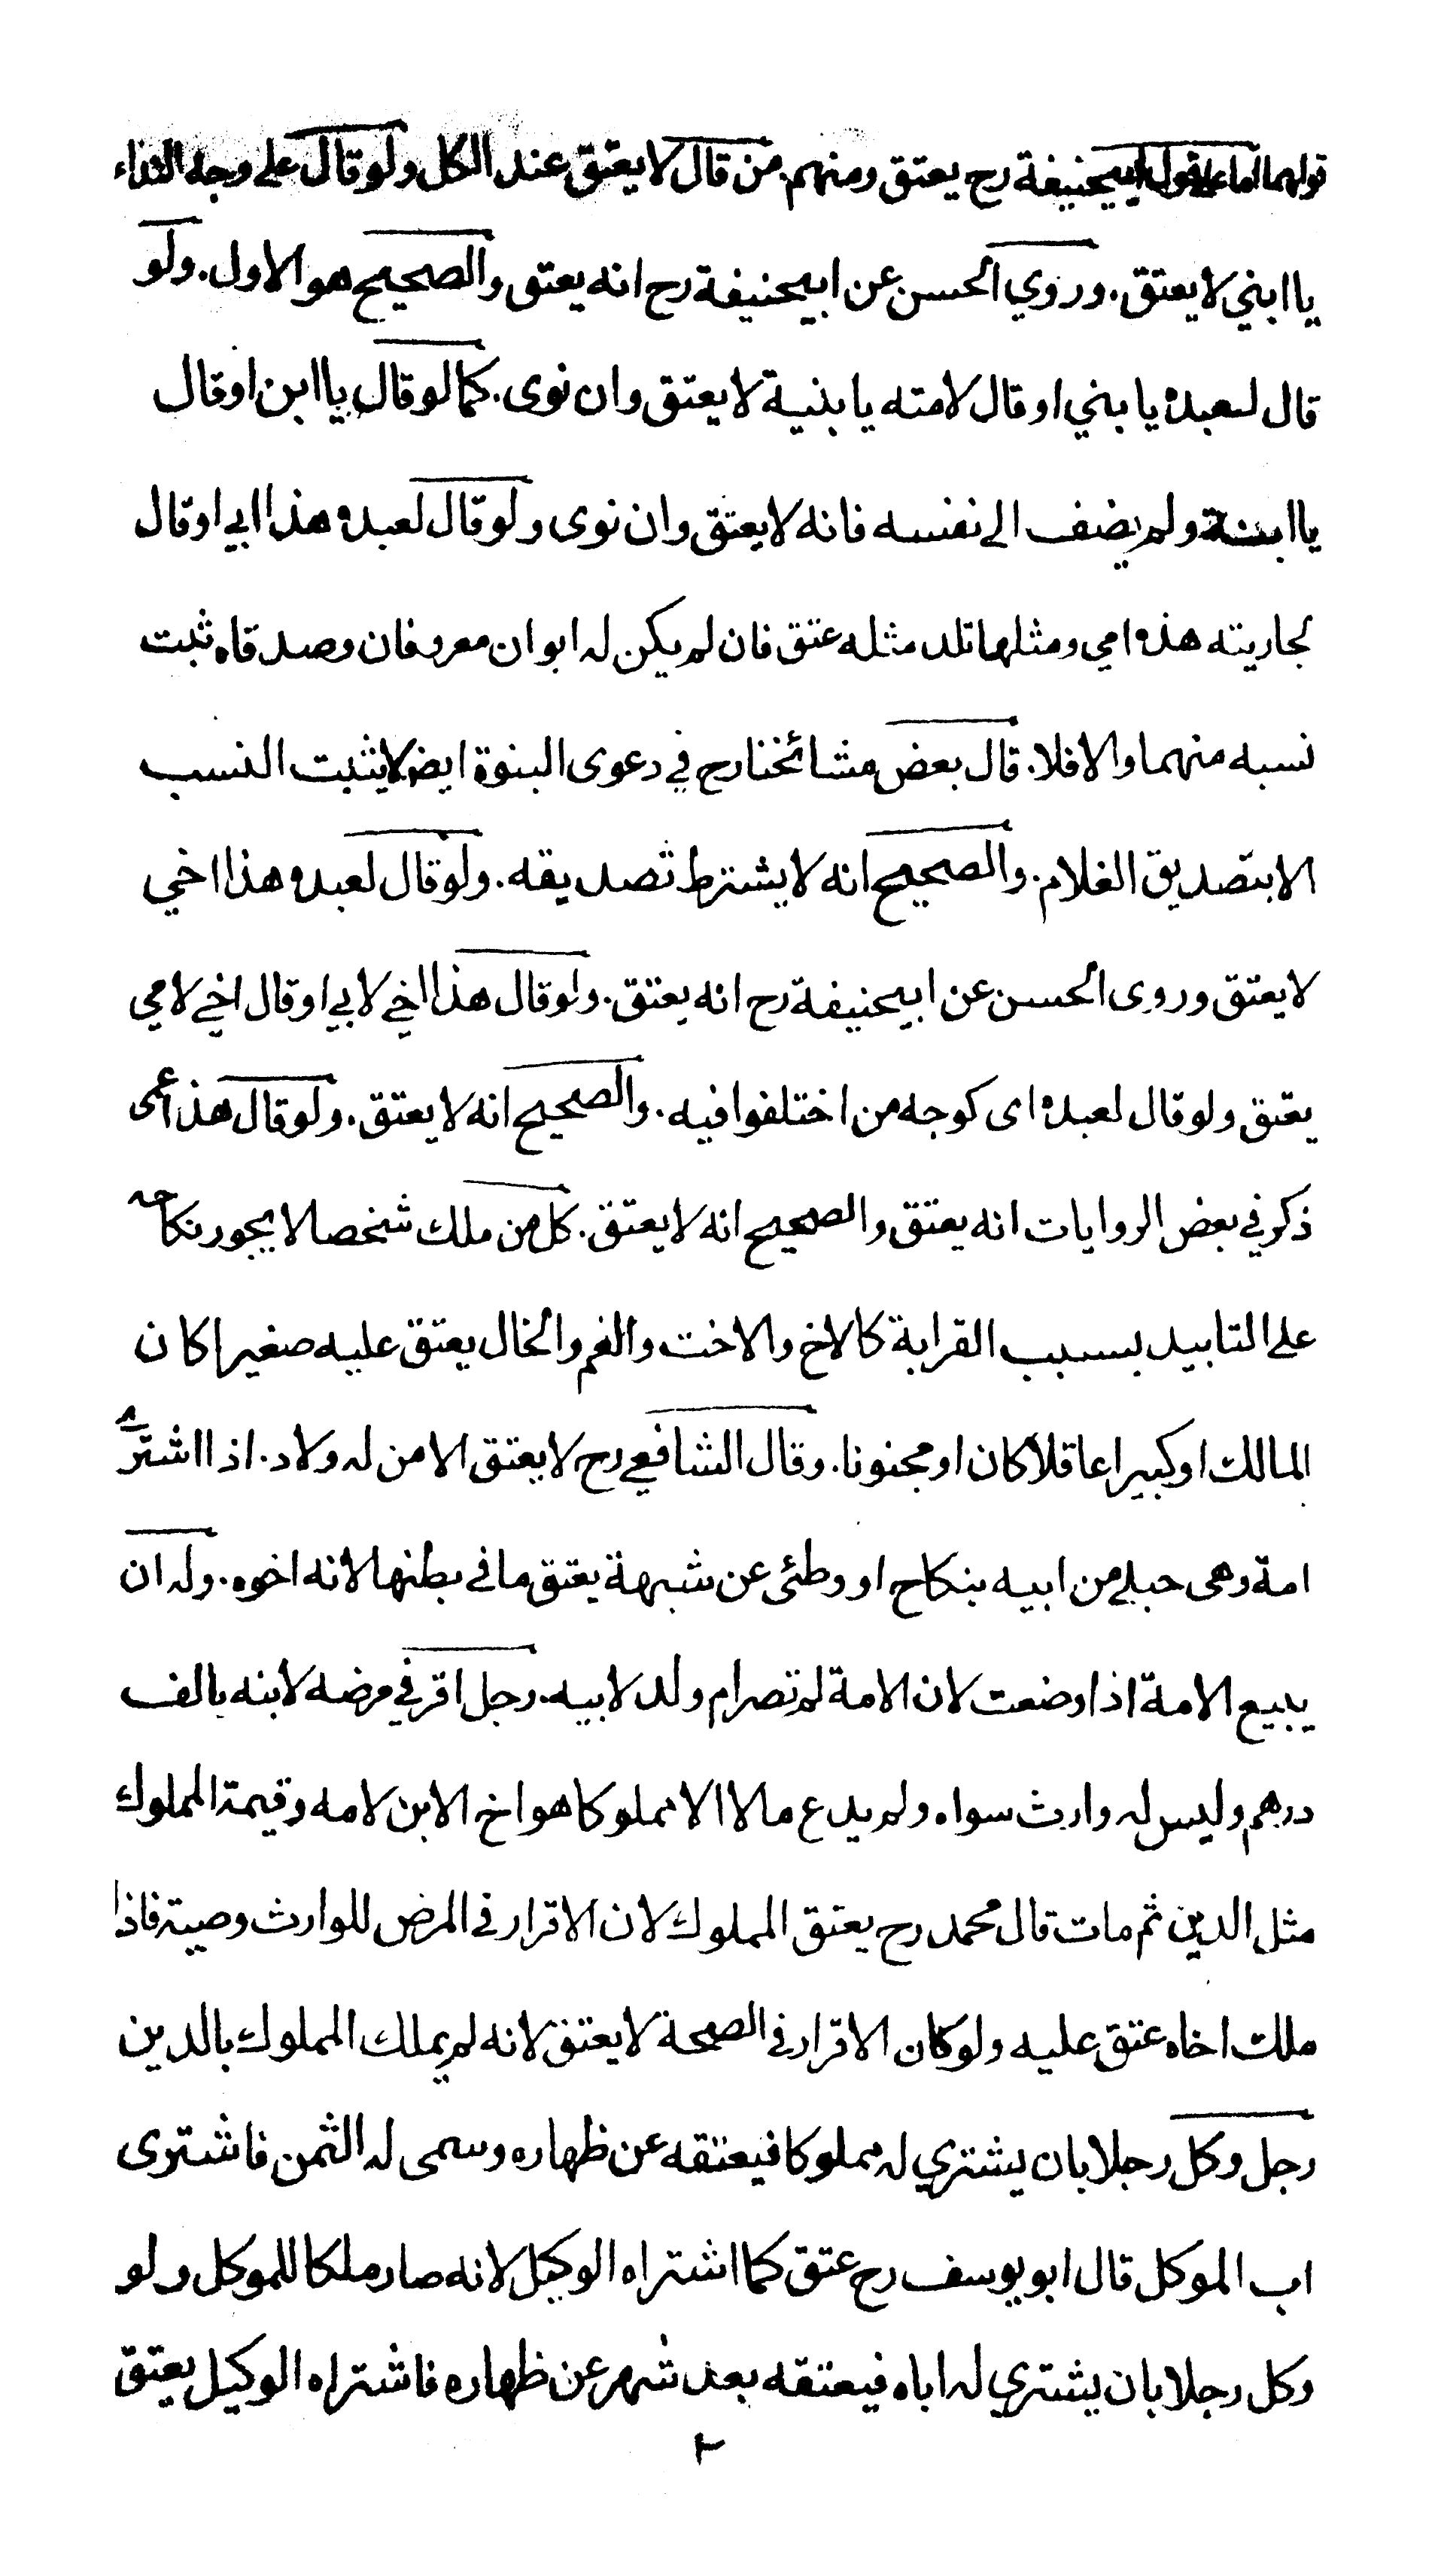 قولهما اما على قول ابيحنيفة رح يعتق ومنهم من قال لا يعتق عند الكل ولو قال على وجه النداء
يا ابني لا يعتق. وروي الحسن عن ابيحنيفة رح انه يعتق والصحيح هو الاول. ولو
قال لعبده يا بني او قال لامته يا بنية لا يعتق وان نوى. كما لو قال يا ابن او قال
يا ابنة ولم يضف الى نفسه فانه لا يعتق وان نوى ولو قال لعبده هذا ابي او قال
لجاريته هذه امي ومثلها تلد مثله عتق فان لم يكن له ابوان معروفان وصدقاه ثبت
نسبه منهما والا فلا. قال بعض مشائخنا رح في دعوى البنوة ايضا لا يثبت النسب
الا بتصديق الغلام. والصحيح انه لا يشترط تصديقه. ولو قال لعبده هذا اخي
لا يعتق وروى الحسن عن ابيحنيفة رح انه يعتق. ولو قال هذا اخي لابي او قال اخي لامي
يعتق ولو قال لعبده اى كوجه من اختلفوا فيه. والصحيح انه لا يعتق. ولو قال هذا عمى
ذكر في بعض الروايات انه يعتق والصحيح انه لا يعتق. كل من ملك شخصا لا يجوز نكاحه
على التابيد بسبب القرابة كالاخ والاخت والعم والخال يعتق عليه صغيرا كان
المالك او كبيرا عاقلا كان او مجنونا. وقال الشافعي رح لا يعتق الا من له ولاد. اذا اشترى
امة وهى حبلى من ابيه بنكاح او وطئى عن شبهة يعتق ما في بطنها لانه اخوه. وله ان
يبيع الامة اذا وضعت لان الامة لم تصر ام ولد لابيه. رجل اقر في مرضه لابنه بالف
درهم وليس له وارث سواه ولم يدع مالا الا مملوكا هو اخ الابن لامه وقيمة المملوك
مثل الدين ثم مات قال محمد رح يعتق المملوك لان الاقرار في المرض للوارث وصية فاذا
ملك اخاه عتق عليه ولو كان الاقرار في الصحة لا يعتق لانه لم يملك المملوك بالدين
رجل وكل رجلا بان يشتري له مملوكا فيعتقه عن ظهاره وسمى له الثمن فاشترى
اب الموكل قال ابو يوسف رح عتق كما اشتراه الوكيل لانه صار ملكا للموكل ولو
وكل رجلا بان يشتري له اباه فيعتقه بعد شهر عن ظهاره فاشتراه الوكيل يعتق
٢